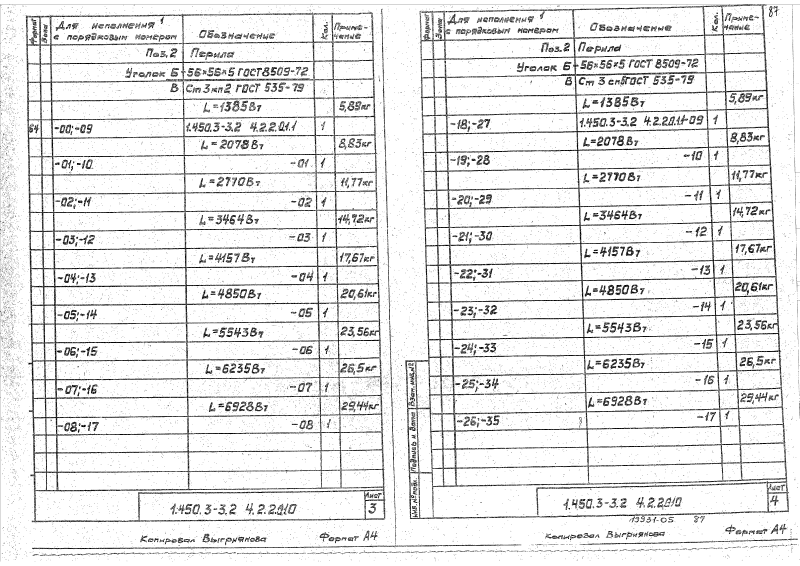 Формат
Зона
Для исполнения 1
с порядковым номером
Обозначение
Кол.
Приме-
чание
Поз.2 Перила
Уголок Б-56×56×5 ГОСТ 8509-72
В Ст3кп2 ГОСТ 535-79
L=1385Вт 5,89кг
64 -00;-09 1.450.3-3.2 4.2.2.01.1 1
L=2078Вт 8,83кг
-01;-10 -01 1
L=2770Вт 11,77кг
-02;-11 -02 1
L=3464Вт 14,72кг
-03;-12 -03 1
L=4157Вт 17,67кг
-04;-13 -04 1
L=4850Вт 20,61кг
-05;-14 -05 1
L=5543Вт 23,56кг
-06;-15 -06 1
L=6235Вт 26,5кг
-07;-16 -07 1
L=6928Вт 29,44кг
-08;-17 -08 1
1.450.3-3.2 4.2.2.010
Лист
3
Копировал Выгриянова Формат А4
87
Формат
Зона
Для исполнения 1
с порядковым номером
Обозначение
Кол.
Приме-
чание
Поз.2 Перила
Уголок Б-56×56×5 ГОСТ 8509-72
В Ст3сп5 ГОСТ 535-79
L=1385Вт 5,89кг
-18;-27 1.450.3-3.2 4.2.2.01.1-09 1
L=2078Вт 8,83кг
-19;-28 -10 1
L=2770Вт 11,77кг
-20;-29 -11 1
L=3464Вт 14,72кг
-21;-30 -12 1
L=4157Вт 17,67кг
-22;-31 -13 1
L=4850Вт 20,61кг
-23;-32 -14 1
L=5543Вт 23,56кг
-24;-33 -15 1
L=6235Вт 26,5кг
-25;-34 -16 1
L=6928Вт 29,44кг
-26;-35 -17 1
Взам.инв.№
Подпись и дата
Инв.№ подл.
1.450.3-3.2 4.2.2.010
Лист
4
19931-05 87
Копировал Выгриянова Формат А4